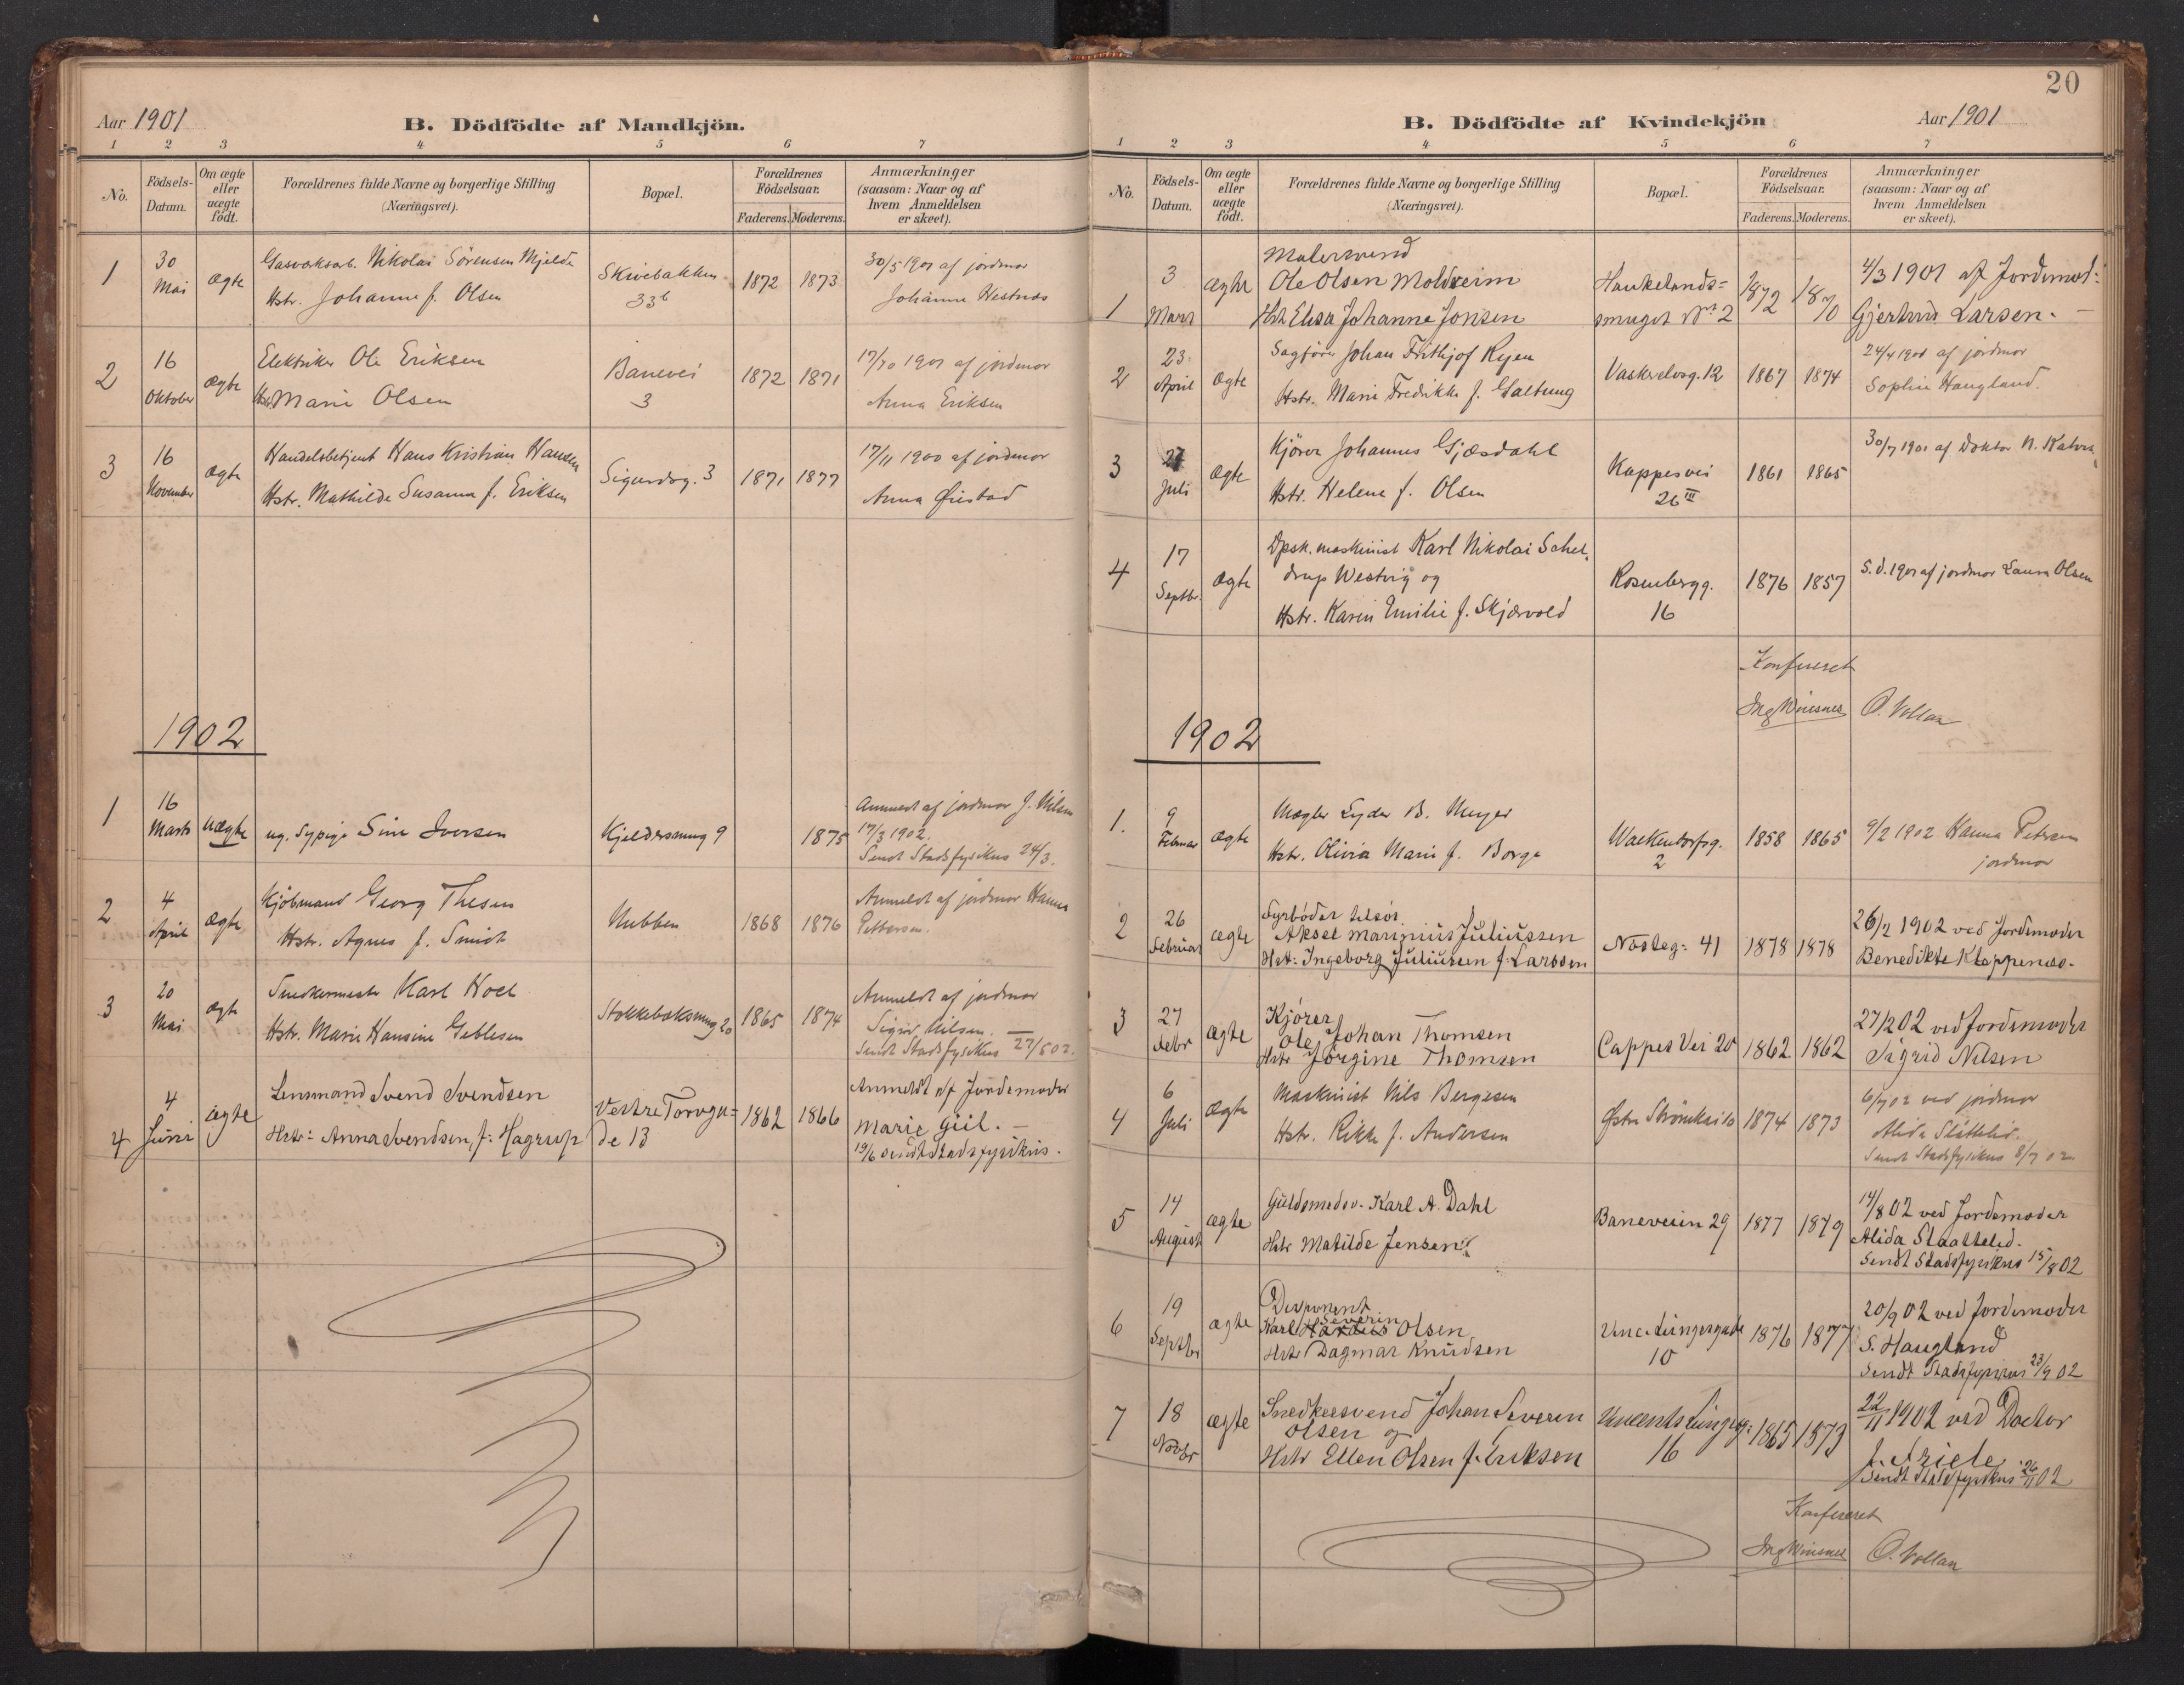 Aar 1901
B. Dödfödte af Mandkjön.
1 2 3 4 5 6 7
No.
Födsels-Datum.
Om ægte eller uægte födt.
Forældrenes fulde Navne og borgerlige Stilling (Næringsvei).
Bopæl.
Forældrenes Födselsaar.
Faderens. Moderens.
Anmærkninger (saasom: Naar og af hvem Anmeldelsen er skeet).
1 30 Mai ægte
Gasværksarb. Nikolai Sörensen Mjelde
Hstr. Johanne f. Olsen
Skivebakken 33b
1872 1873
30/5 1901 af jordmor
Johanne Westnæs
2 16 Oktober ægte
Elektriker Ole Eriksen
Hstr. Marie Olsen
Banevei 3
1872 1871
17/10 1901 af jordmor
Anna Eriksen
3 16 November ægte
Handelsbetjent Hans Kristian Hansen
Hstr. Mathilde Susanna f. Eriksen
Sigurdsg. 3
1871 1877
17/11 1900 af jordmor
Anna Øiestad
1902
1 16 Marts uægte
ug. Sypige Sine Iversen
Kjeldersmug 9
1875
Anmeldt af jordmor J. Nilsen
17/3 1902.
Sendt Stadsfysikus 24/3.
2 4 April ægte
Kjöbmand Georg Thesen
Hstr. Agnes f. Smith
Nubben
1868 1876
Anmeldt af jordmor Hanna
Pettersen.
3 20 Mai ægte
Snedkermester Karl Hoel
Hstr. Marie Hansine Geblesen
Stokkebæksmug 20
1865 1874
Anmeldt af jordmor
Sigrid Nilsen. —
Sendt Stadsfysikus 22/5 02.
4 4 Juni ægte
Lensmand Svend Svendsen
Hstr: Anna Svendsen, f: Hagerup
Vestre Torvga=
de 13
1862 1866
Anmeldt af Jordemoder
Marie Giil. —
19/6 sendt Stadsfysikus.
20
B. Dödfödte af Kvindekjön
Aar 1901
1 2 3 4 5 6 7
No.
Födsels-Datum.
Om ægte eller uægte födt.
Forældrenes fulde Navne og borgerlige Stilling (Næringsvei).
Bopæl.
Forældrenes Födselsaar.
Faderens. Moderens.
Anmærkninger (saasom: Naar og af hvem Anmeldelsen er skeet).
1 3 Mars ægte
Malersvend
Ole Olsen Moldreim
Hst. Elisa Johanna Jonsen
Haukelands=
smuget No 2
1872 1870
4/3 1901 af Jordemod:
Gjertrud Larsen. —
2 23 April ægte
Sagförer Johan Frithjof Ryen
Hstr. Marie Fredrikke f. Galtung
Vaskerelvsg. 12
1867 1874
24/4 1901 af jordmor
Sophie Haugland.
3 27 Juli ægte
Kjörer Johannes Gjæsdahl
Hstr. Helene f. Olsen
Kappesvei
26 III
1861 1865
30/7 1901 af Doktor N.
4 17 Septbr. ægte
Dpsk. maskinist Karl Nikolai Schel=
drup Westvig og
Hstr. Karen Emilie f. Skjærvold
Rosenbergg.
16
1876 1857
S. d. 1901 af jordmor Laura Olsen
Konfereret
Ing Winsnes O. Vollan
1902
1. 9 Februar ægte
Mægler Lyder B. Meyer
Hstr. Olivia Marie f. Borge
Walkendorfsg.
2
1858 1865
9/2 1902 Hanna Petersen
jordmor
2 26 Februar ægte
Fyrböder tilsös
Aksel Marinius Juliussen
Hst: Ingeborg Juliussen f. Larssen
Nösteg: 41
1878 1878
26/2 1902 ved Jordemoder
Benedikte Kleppenæs.
3 27 Febr ægte
Kjörer
Ole Johan Thomsen
Hstr Jörgine Thomsen
Cappes Vei 20
1862 1862
27/2 02 ved Jordemoder
Sigrid Nilsen
4 6 Juli ægte
Maskinist Nils Bergesen
Hstr. Rikke f. Andersen
Østre Strömkai 10
1874 1873
6/7 02 ved jordmor
Alida Slåttelid.
Sendt Stadsfysikus 8/7 02
5 14 August ægte
Guldsmedsv. Karl A. Dahl
Hstr Matilde Jensen
Baneveien 29
1877 1879
14/8 02 ved Jordemoder
Alida Slaattelid.
Sendt Stadsfysikus 15/8 02
6 19 Septbr ægte
Disponent
Severin
Karl Olsen
Hstr Dagmar Knudsen
Vinc. Lungesgade
10
1876 1877
20/9 02 ved Jordemoder
S. Haugland
Sendt Stadsfysikus 23/9 02
7 18 Novbr ægte
Snedkersvend Johan Severin
Olsen og
Hstr Ellen Olsen f. Eriksen
Vincents Lungesg:
16
1865 1873
22/11 1902 ved Doctor
Sendt Stadsfysikus 26/11 02
Konfereret
Ing Winsnes O. Vollan